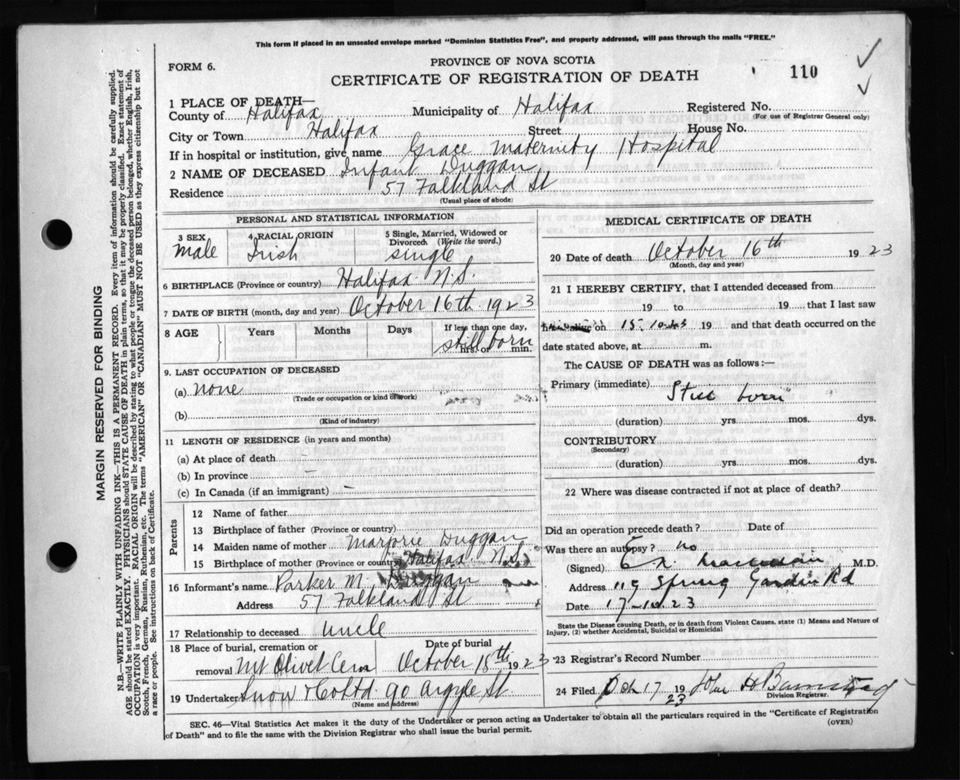 This form if placed in an unsealed envelope marked "Dominion Statistics Free", and properly addressed, will pass through the mails "FREE."
FORM 6.
PROVINCE OF NOVA SCOTIA
CERTIFICATE OF REGISTRATION OF DEATH
110
1 PLACE OF DEATH—
County of Halifax Municipality of Halifax Registered No.
(For use of Registrar General only)
City or Town Halifax Street House No.
If in hospital or institution, give name Grace Maternity Hospital
2 NAME OF DECEASED Infant Duggan
Residence 57 Falkland St
(Usual place of abode)
PERSONAL AND STATISTICAL INFORMATION
3 SEX
Male
4 RACIAL ORIGIN
Irish
5 Single, Married, Widowed or Divorced (Write the word.)
single
6 BIRTHPLACE (Province or country) Halifax N.S.
7 DATE OF BIRTH (month, day and year) October 16th 1923
8 AGE Years Months Days If less than one day,
still born
hrs. or min.
9. LAST OCCUPATION OF DECEASED
(a) none
(Trade or occupation or kind of work)
(b)
(Kind of industry)
11 LENGTH OF RESIDENCE (in years and months)
(a) At place of death
(b) In province –
(c) In Canada (if an immigrant) –
Parents
12 Name of father
13 Birthplace of father (Province or country)
14 Maiden name of mother Marjorie Duggan
15 Birthplace of mother (Province or country) Halifax N.S.
16 Informant's name Parker M. Duggan
Address 57 Falkland St
17 Relationship to deceased uncle
18 Place of burial, cremation or removal Mt Olivet Cem
Date of burial
October 18th 1923
19 Undertaker Snow & Co Ltd 90 Argyle St
(Name and address)
MEDICAL CERTIFICATE OF DEATH
20 Date of death October 16th 1923
(Month, day and year)
21 I HEREBY CERTIFY, that I attended deceased from
19 to 19 that I last saw
on 15-10-23 19 and that death occurred on the
date stated above, at m.
The CAUSE OF DEATH was as follows:—
Primary (immediate) Still born
(duration) yrs. mos. dys.
CONTRIBUTORY
(Secondary)
(duration) yrs. mos. dys.
22 Where was disease contracted if not at place of death?
Did an operation precede death? Date of
Was there an autopsy? no
(Signed) M.D.
Address 119 Spring Garden Rd
Date 17-10-23
State the Disease causing Death, or in death from Violent Causes, state (1) Means and Nature of Injury, (2) whether Accidental, Suicidal or Homicidal
23 Registrar's Record Number
24 Filed, Oct 17 1923 John H Barnstead
Division Registrar.
SEC. 46—Vital Statistics Act makes it the duty of the Undertaker or person acting as Undertaker to obtain all the particulars required in the "Certificate of Registration of Death" and to file the same with the Division Registrar who shall issue the burial permit.
(OVER)
MARGIN RESERVED FOR BINDING
N.B.—WRITE PLAINLY WITH UNFADING INK—THIS IS A PERMANENT RECORD. Every item of information should be carefully supplied.
AGE should be stated EXACTLY. PHYSICIANS should STATE CAUSE OF DEATH in plain terms, so that it may be properly classified. Exact statement of
OCCUPATION is very important. RACIAL ORIGIN will be described by stating to what people or tongue the deceased person belonged, whether English, Irish,
Scotch, French, German, Russian, Ruthenian, etc. The terms "AMERICAN" or "CANADIAN" MUST NOT BE USED as they express citizenship but not
a race or people. See instructions on back of Certificate.